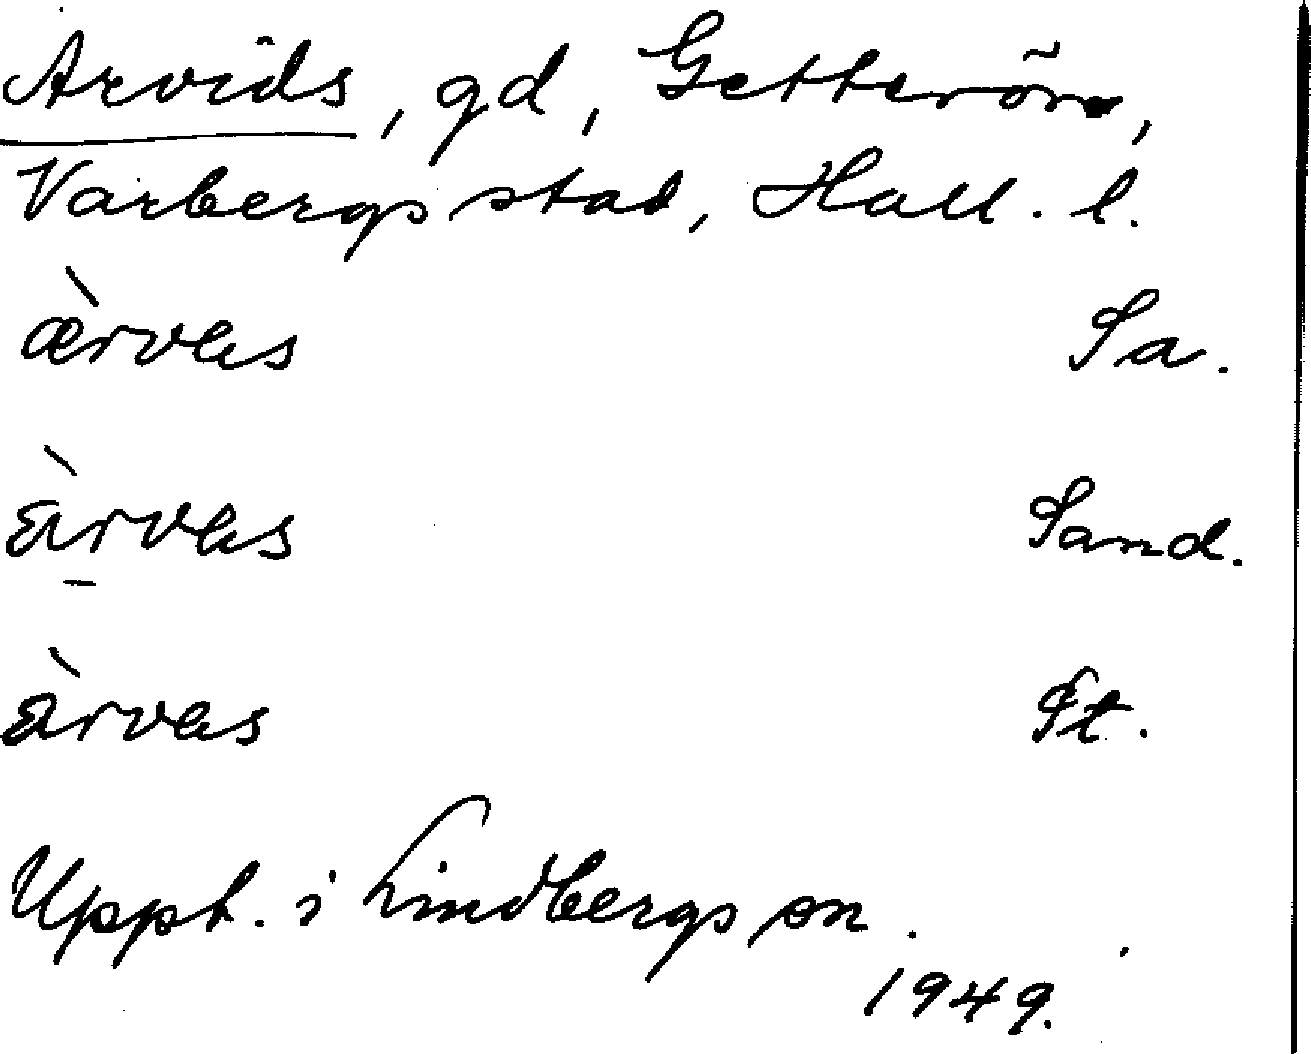 Arvids, gd, Getterön,
Varbergs stad, Hall. l.
ærvas Sa.
arvas Sand.
arvas St.
Uppt. i Lindbergs sn.
1949.